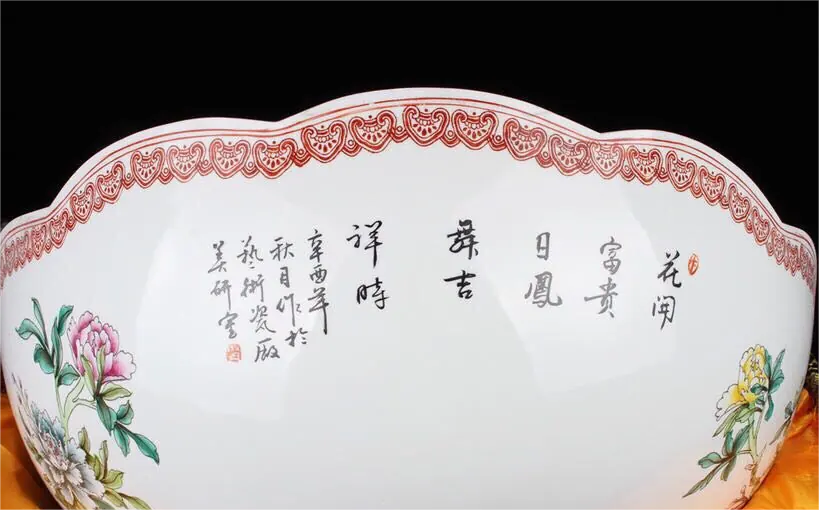 花開
富貴
日鳳
舞吉
祥時
辛酉年
秋月作於
藝術瓷廠
美研室